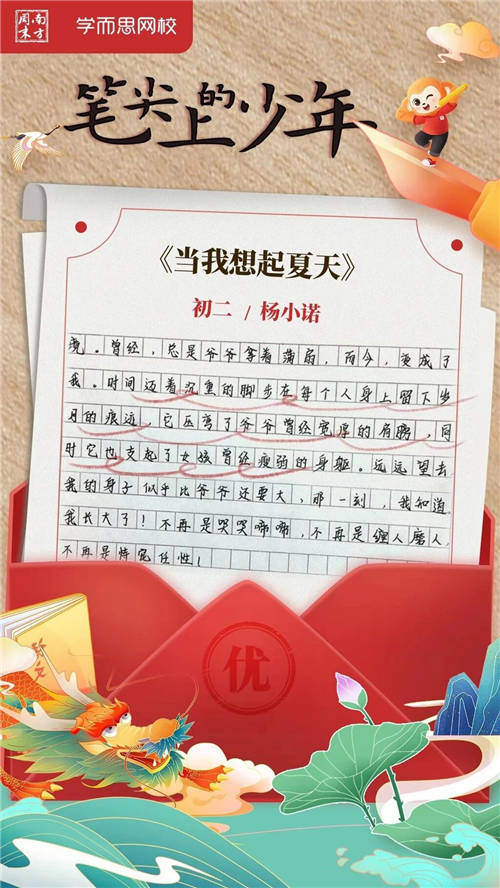 南方周末
学而思网校
笔尖上的少年
《当我想起夏天》
初二 / 杨小诺
凳。曾经，总是爷爷拿着蒲扇，而今，变成了
我。时间迈着沉重的脚步在每个人身上留下岁
月的痕迹，它压弯了爷爷曾经宽厚的肩膀，同
时它也支起了女孩曾经瘦弱的身躯。远远望去
我的身子似乎比爷爷还要大，那一刻，我知道
我长大了！不再是哭哭啼啼，不再是缠人磨人
不再是恃宠任性！
优